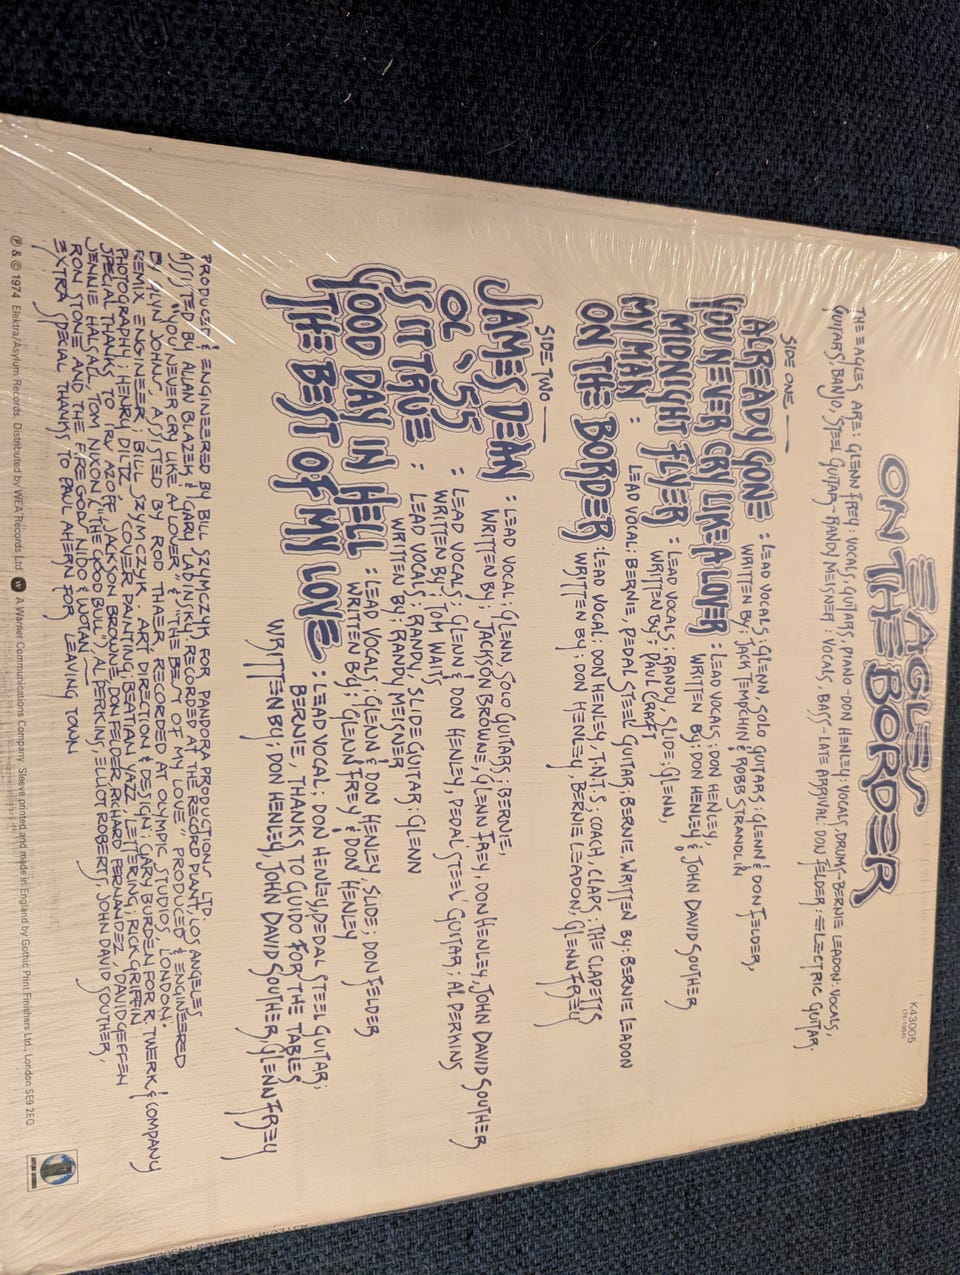 EAGLES
ON THE BORDER
K43005
(7E-1004)
THE EAGLES ARE: GLENN FREY: VOCALS, GUITARS, PIANO - DON HENLEY: VOCALS, DRUMS - BERNIE LEADON: VOCALS,
GUITARS, BANJO, STEEL GUITAR - RANDY MEISNER: VOCALS, BASS - LATE ARRIVAL: DON FELDER: ELECTRIC GUITAR.
SIDE ONE —
ALREADY GONE : LEAD VOCALS; GLENN, SOLO GUITARS; GLENN & DON FELDER,
WRITTEN BY; JACK TEMPCHIN & ROBB STRANDLIN
YOU NEVER CRY LIKE A LOVER : LEAD VOCALS; DON HENLEY,
WRITTEN BY: DON HENLEY & JOHN DAVID SOUTHER
MIDNIGHT FLYER : LEAD VOCALS; RANDY, SLIDE; GLENN,
WRITTEN BY; PAUL CRAFT
MY MAN : LEAD VOCAL; BERNIE, PEDAL STEEL GUITAR; BERNIE WRITTEN BY: BERNIE LEADON
ON THE BORDER : LEAD VOCAL: DON HENLEY, T.N.T.S; COACH, CLAPS; THE CLAPETTS
WRITTEN BY; DON HENLEY, BERNIE LEADON, GLENN FREY
SIDE TWO —
JAMES DEAN : LEAD VOCAL; GLENN, SOLO GUITARS; BERNIE,
WRITTEN BY; JACKSON BROWNE, GLENN FREY, DON HENLEY, JOHN DAVID SOUTHER
OL '55 : LEAD VOCALS; GLENN & DON HENLEY, PEDAL STEEL GUITAR; AL PERKINS
WRITTEN BY: TOM WAITS
IS IT TRUE : LEAD VOCALS; RANDY, SLIDE GUITAR: GLENN
WRITTEN BY; RANDY MEISNER
GOOD DAY IN HELL : LEAD VOCALS; GLENN & DON HENLEY, SLIDE; DON FELDER
WRITTEN BY; GLENN FREY & DON HENLEY
THE BEST OF MY LOVE : LEAD VOCAL: DON HENLEY, PEDAL STEEL GUITAR;
BERNIE, THANKS TO GUIDO FOR THE TABLES
WRITTEN BY; DON HENLEY, JOHN DAVID SOUTHER, GLENN FREY
PRODUCED & ENGINEERED BY BILL SZYMCZYK FOR PANDORA PRODUCTIONS, LTD.
ASSISTED BY ALLAN BLAZEK & GARY LADINSKY. RECORDED AT THE RECORD PLANT, LOS ANGELES
"YOU NEVER CRY LIKE A LOVER" & "THE BEST OF MY LOVE" PRODUCED & ENGINEERED
BY GLYN JOHNS, ASSISTED BY ROD THAER, RECORDED AT OLYMPIC STUDIOS, LONDON.
REMIX ENGINEER; BILL SZYMCZYK. ART DIRECTION & DESIGN; GARY BURDEN FOR TWERK & COMPANY
PHOTOGRAPHY; HENRY DILTZ, COVER PAINTING; BEATIAN YAZZ, LETTERING; RICK GRIFFIN
SPECIAL THANKS TO IRV AZOFF, JACKSON BROWNE, DON FELDER, RICHARD FERNANDEZ, DAVID GEFFEN
JENNIE HALCALL, TOM NIXON ("THE GOOD BULL"), AL PERKINS, ELLIOT ROBERTS, JOHN DAVID SOUTHER,
RON STONE AND THE FIRE GOD NIDO & WOTAN
EXTRA SPECIAL THANKS TO PAUL AHERN FOR LEAVING TOWN
℗ & © 1974 Elektra/Asylum Records. Distributed by WEA Records Ltd. A Warner Communications Company. Sleeve printed and made in England by Gothic Print Finishers Ltd., London SE9 2EQ
ASYLUM RECORDS